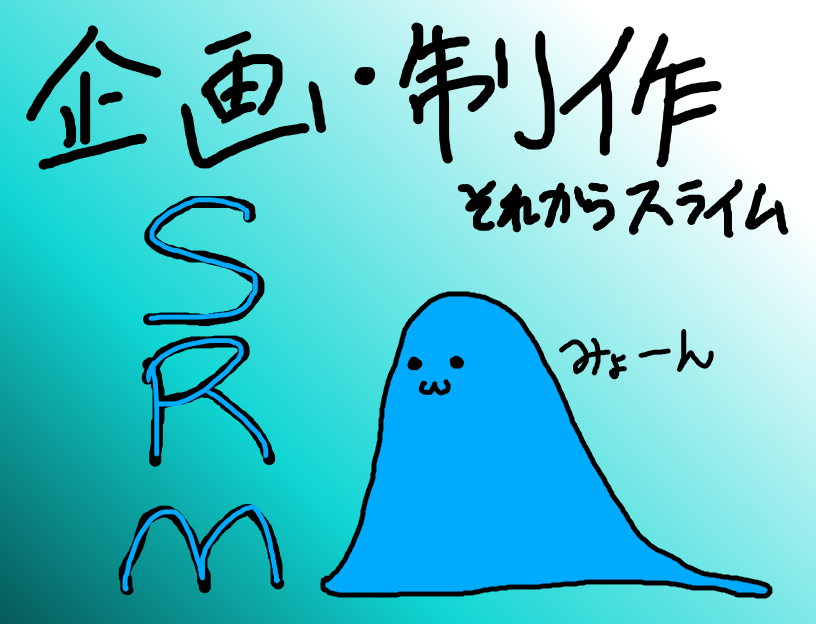 企画・制作
それからスライム
S
R
M
みょーん